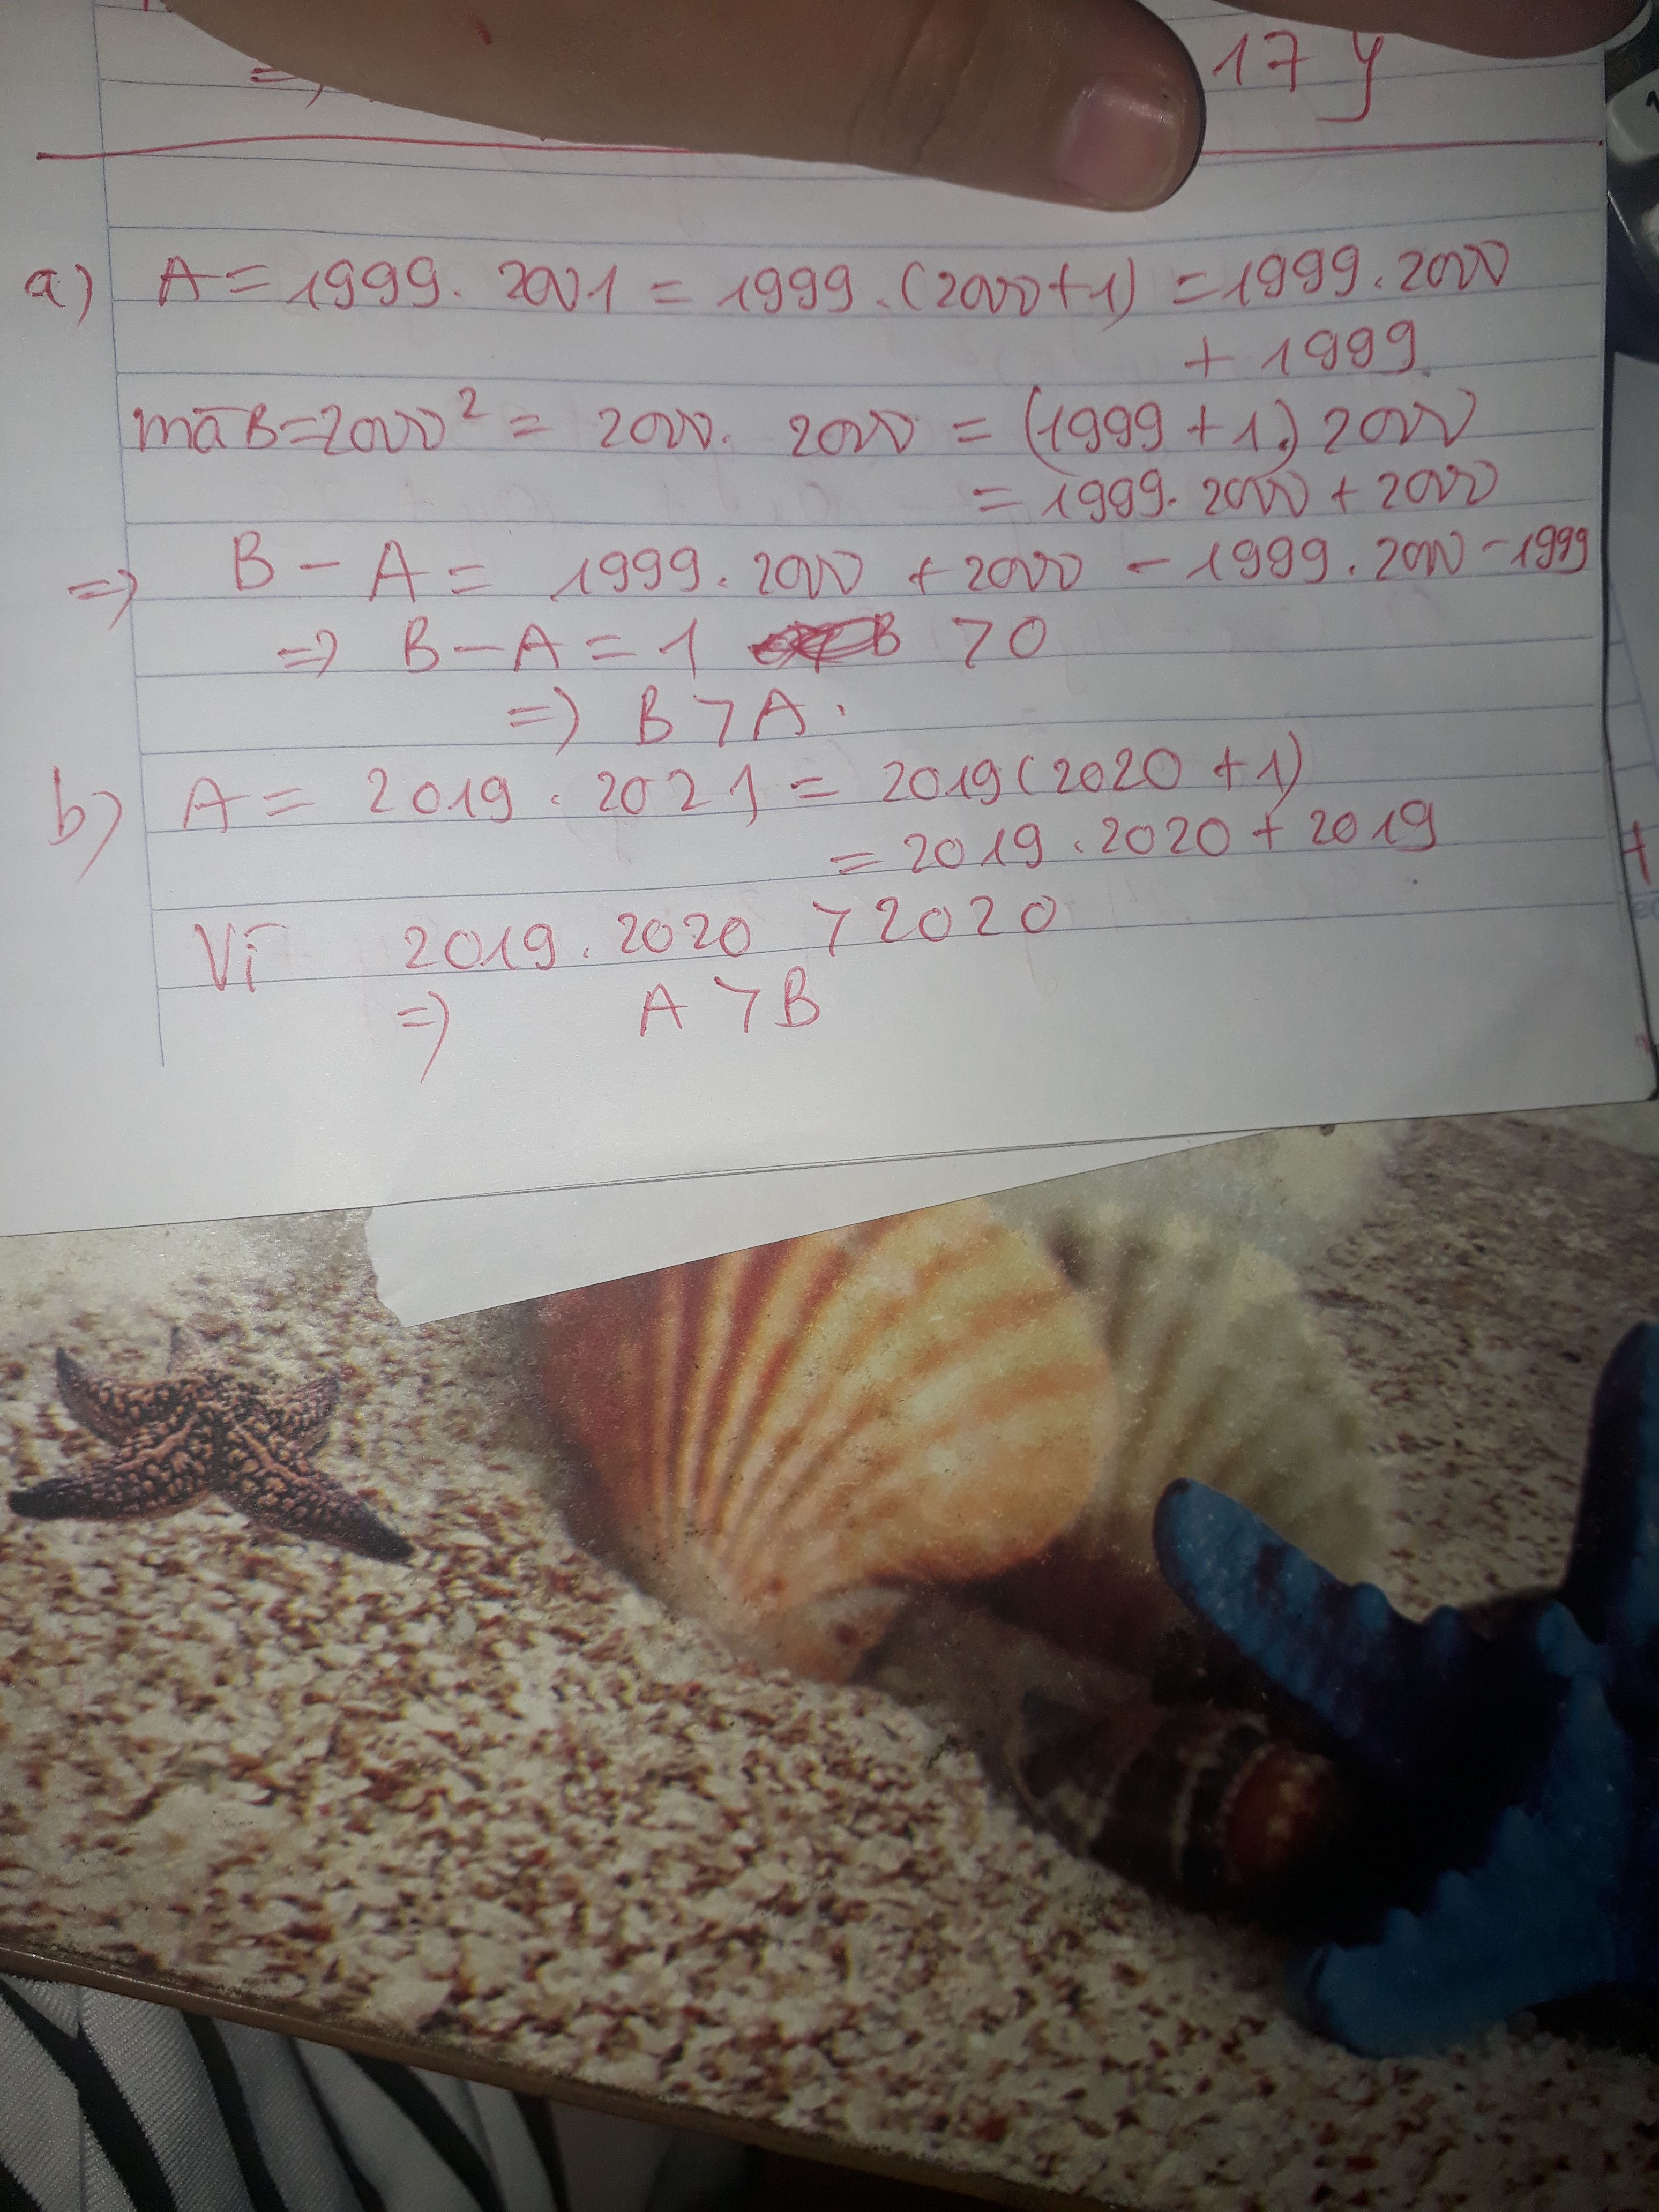 => 17 y
a) A = 1999 . 2001 = 1999 . (2000+1) = 1999 . 2000
+ 1999
mà B = 2000² = 2000 . 2000 = (1999 + 1) 2000
= 1999 . 2000 + 2000
=> B - A = 1999 . 2000 + 2000 - 1999 . 2000 - 1999
=> B - A = 1 > 0
=> B > A .
b) A = 2019 . 2021 = 2019 (2020 + 1)
= 2019 . 2020 + 2019
Vì 2019 . 2020 > 2020
=> A > B